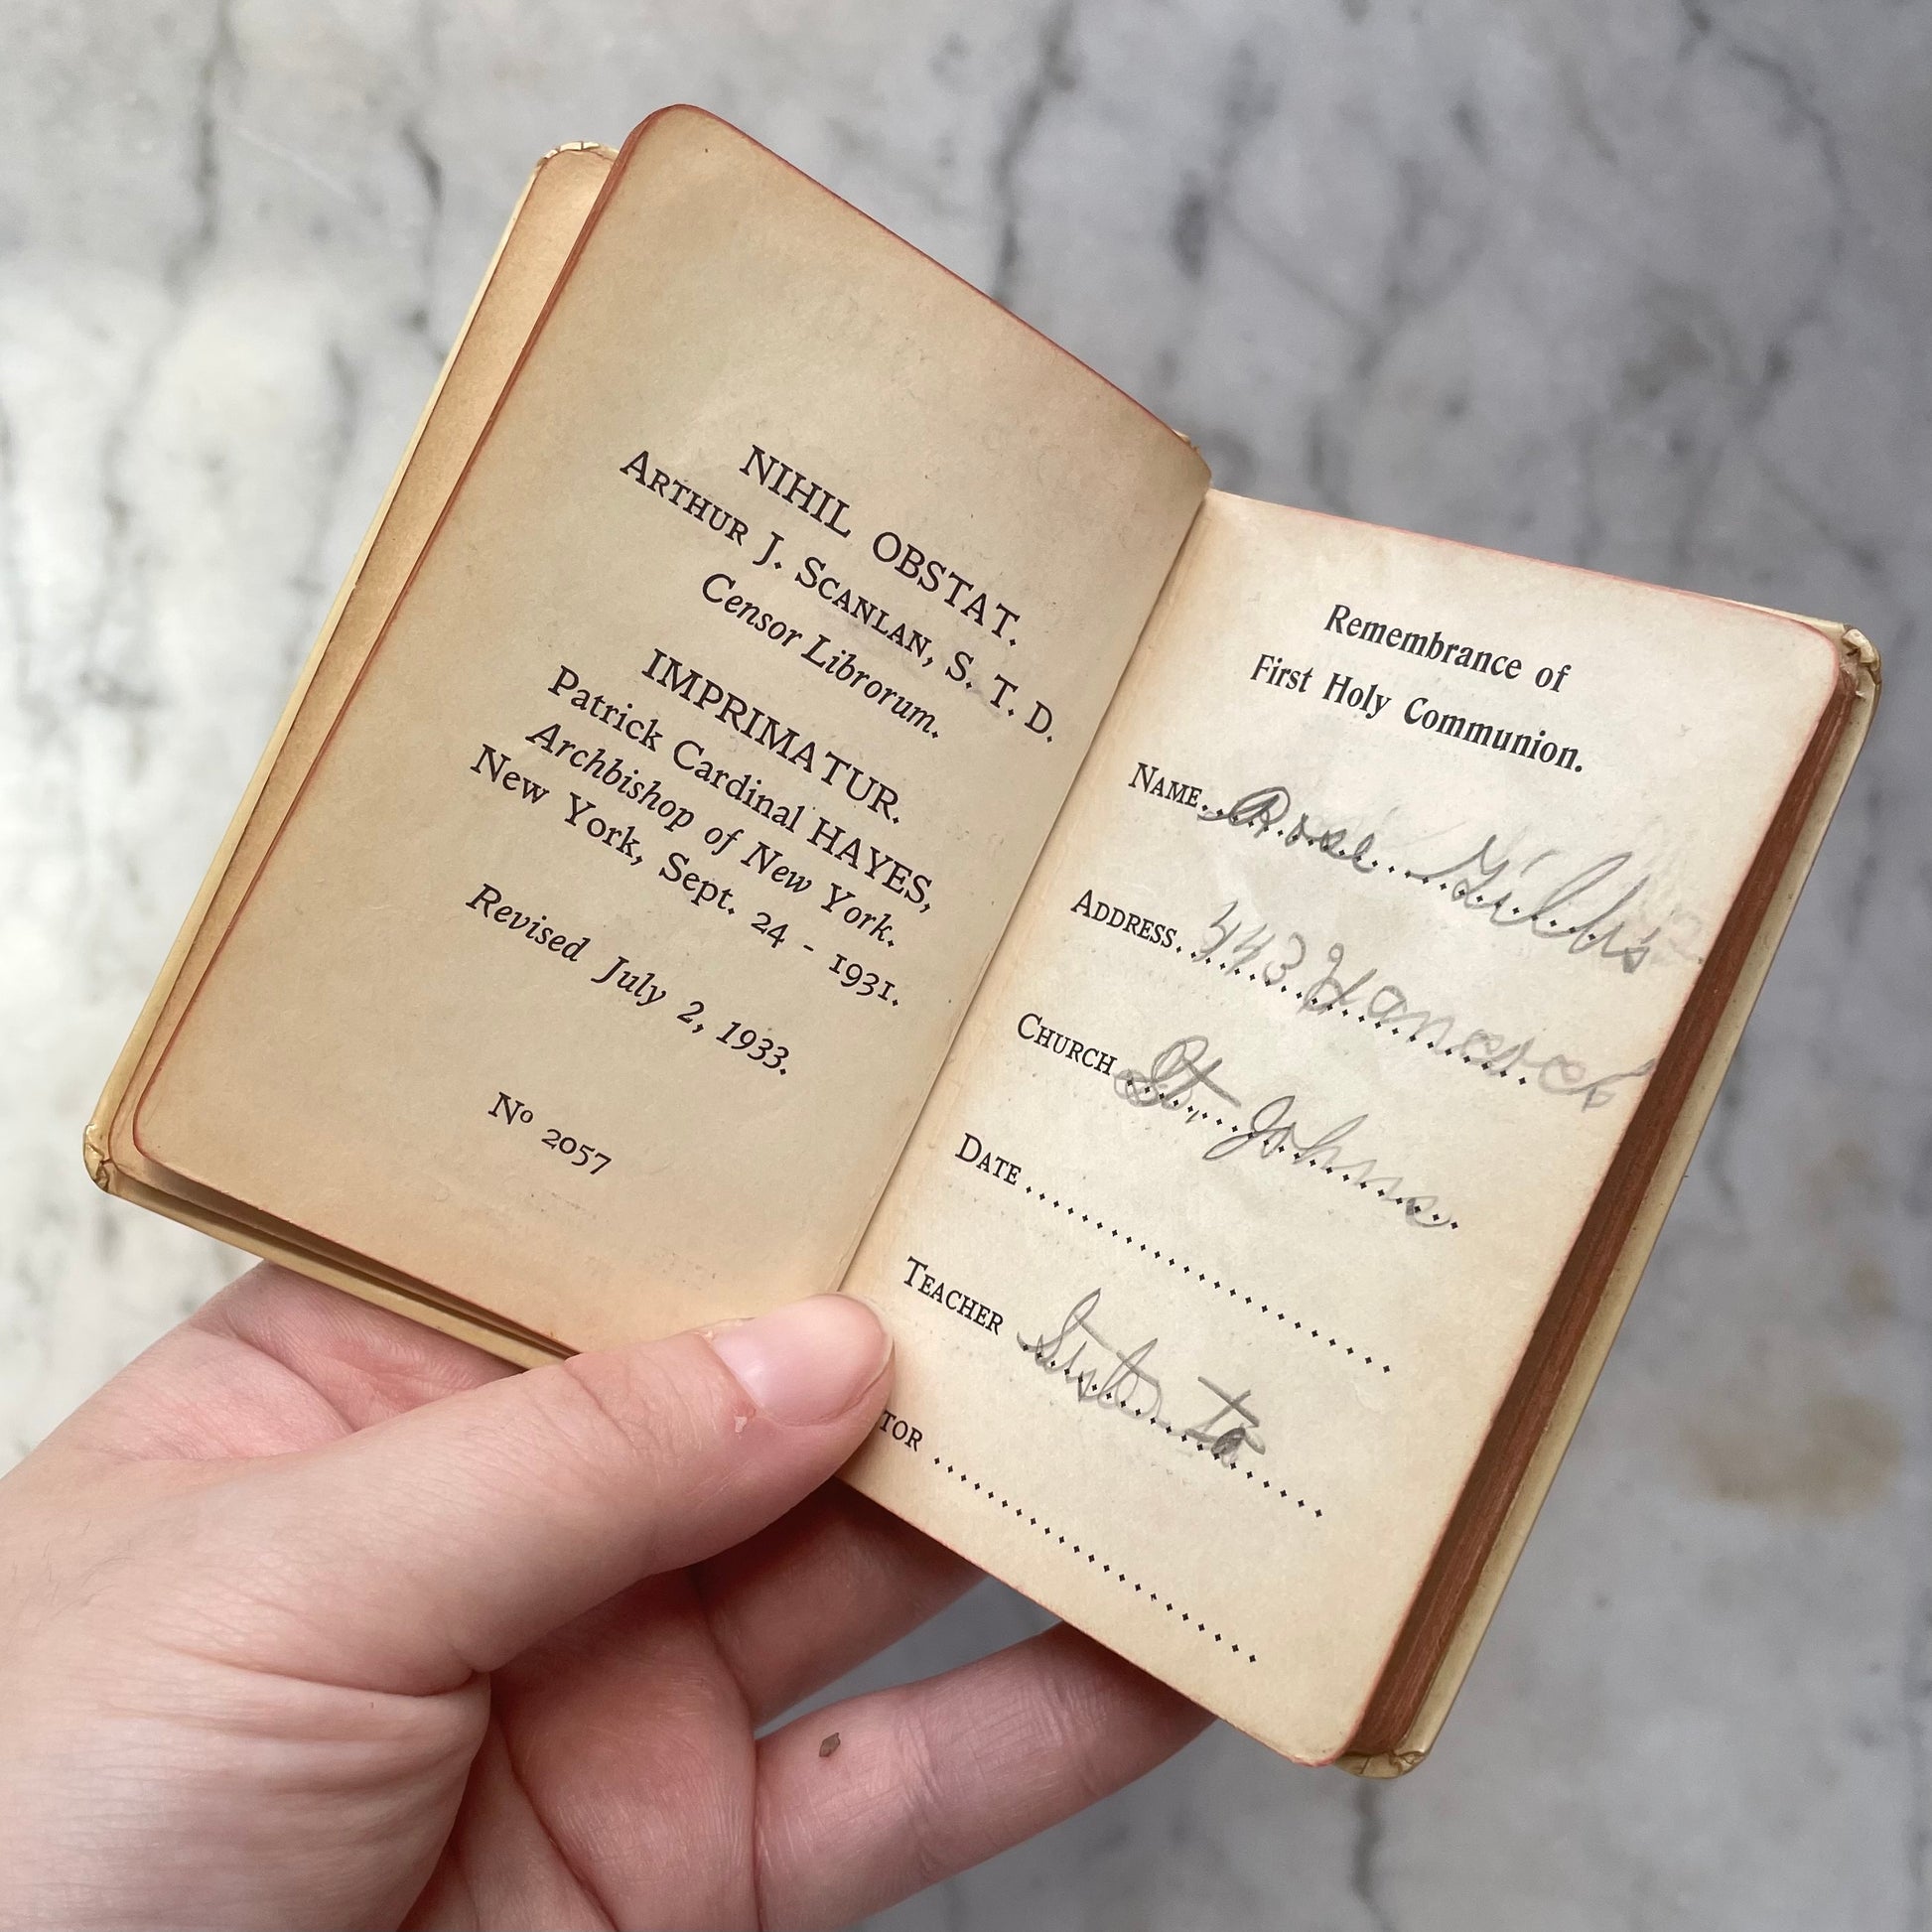 NIHIL OBSTAT.
ARTHUR J. SCANLAN, S. T. D.
Censor Librorum.
IMPRIMATUR.
Patrick Cardinal HAYES,
Archbishop of New York.
New York, Sept. 24 - 1931.
Revised July 2, 1933.
No 2057
Remembrance of
First Holy Communion.
NAME Rose
ADDRESS 443 Hancock
CHURCH St. Johns
DATE
TEACHER Sister
TOR